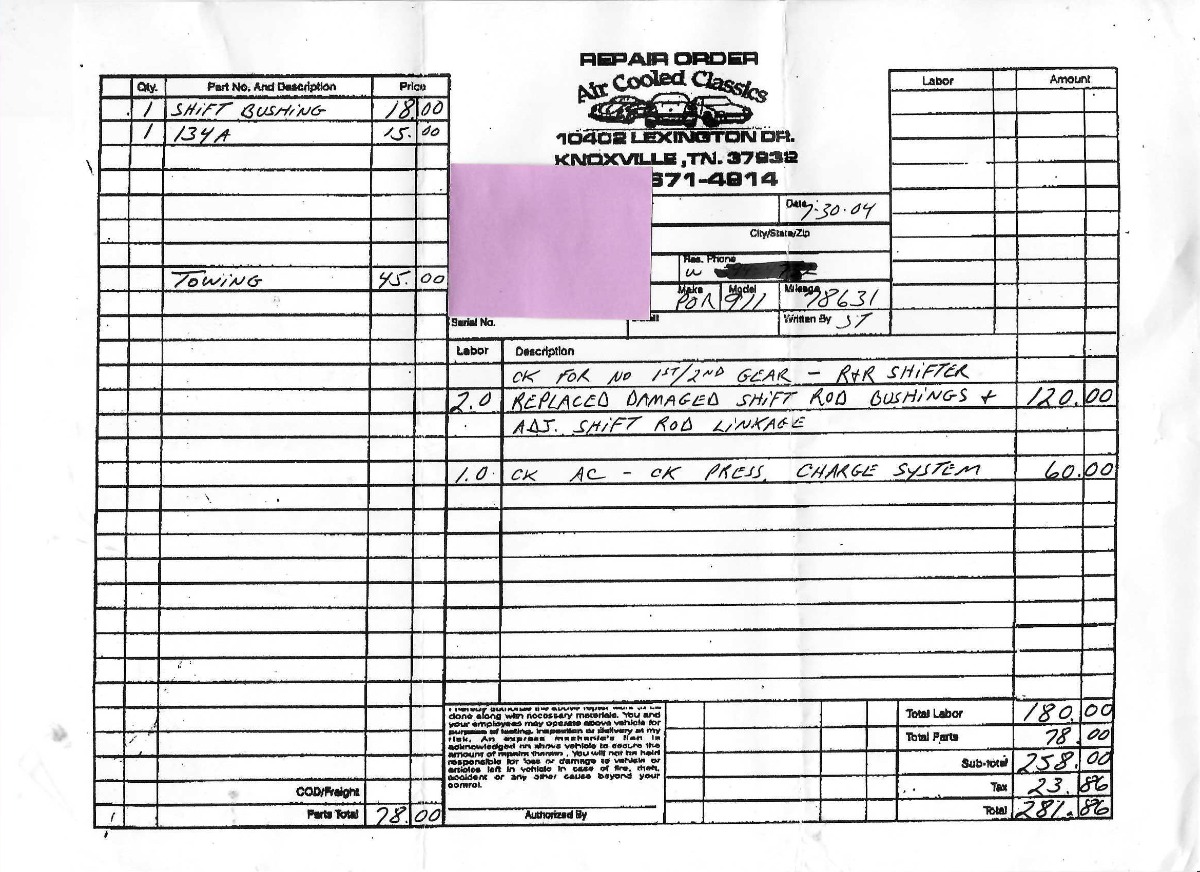 REPAIR ORDER
Air Cooled Classics
10402 LEXINGTON DR.
KNOXVILLE ,TN. 37932
671-4814
Qty. Part No. And Description Price
1 SHIFT BUSHING 18.00
1 134A 15.00
TOWING 45.00
COD/Freight
Parts Total 78.00
Labor Amount
Date 7-30-04
City/State/Zip
Res. Phone
W
Make POR Model 911 Mileage 78631
Serial No. Written By ST
Labor Description
CK FOR NO 1ST/2ND GEAR - R+R SHIFTER
2.0 REPLACED DAMAGED SHIFT ROD BUSHINGS + 120.00
ADJ. SHIFT ROD LINKAGE
1.0 CK AC - CK PRESS, CHARGE SYSTEM 60.00
I hereby authorize the above repair work to be
done along with necessary materials. You and
your employees may operate above vehicle for
purpose of testing, inspection or delivery at my
risk. An express mechanic's lien is
acknowledged on above vehicle to secure the
amount of repairs thereto. You will not be held
responsible for loss or damage to vehicle or
articles left in vehicle in case of fire, theft,
accident or any other cause beyond your
control.
Authorized By
Total Labor 180.00
Total Parts 78.00
Sub-total 258.00
Tax 23.86
Total 281.86